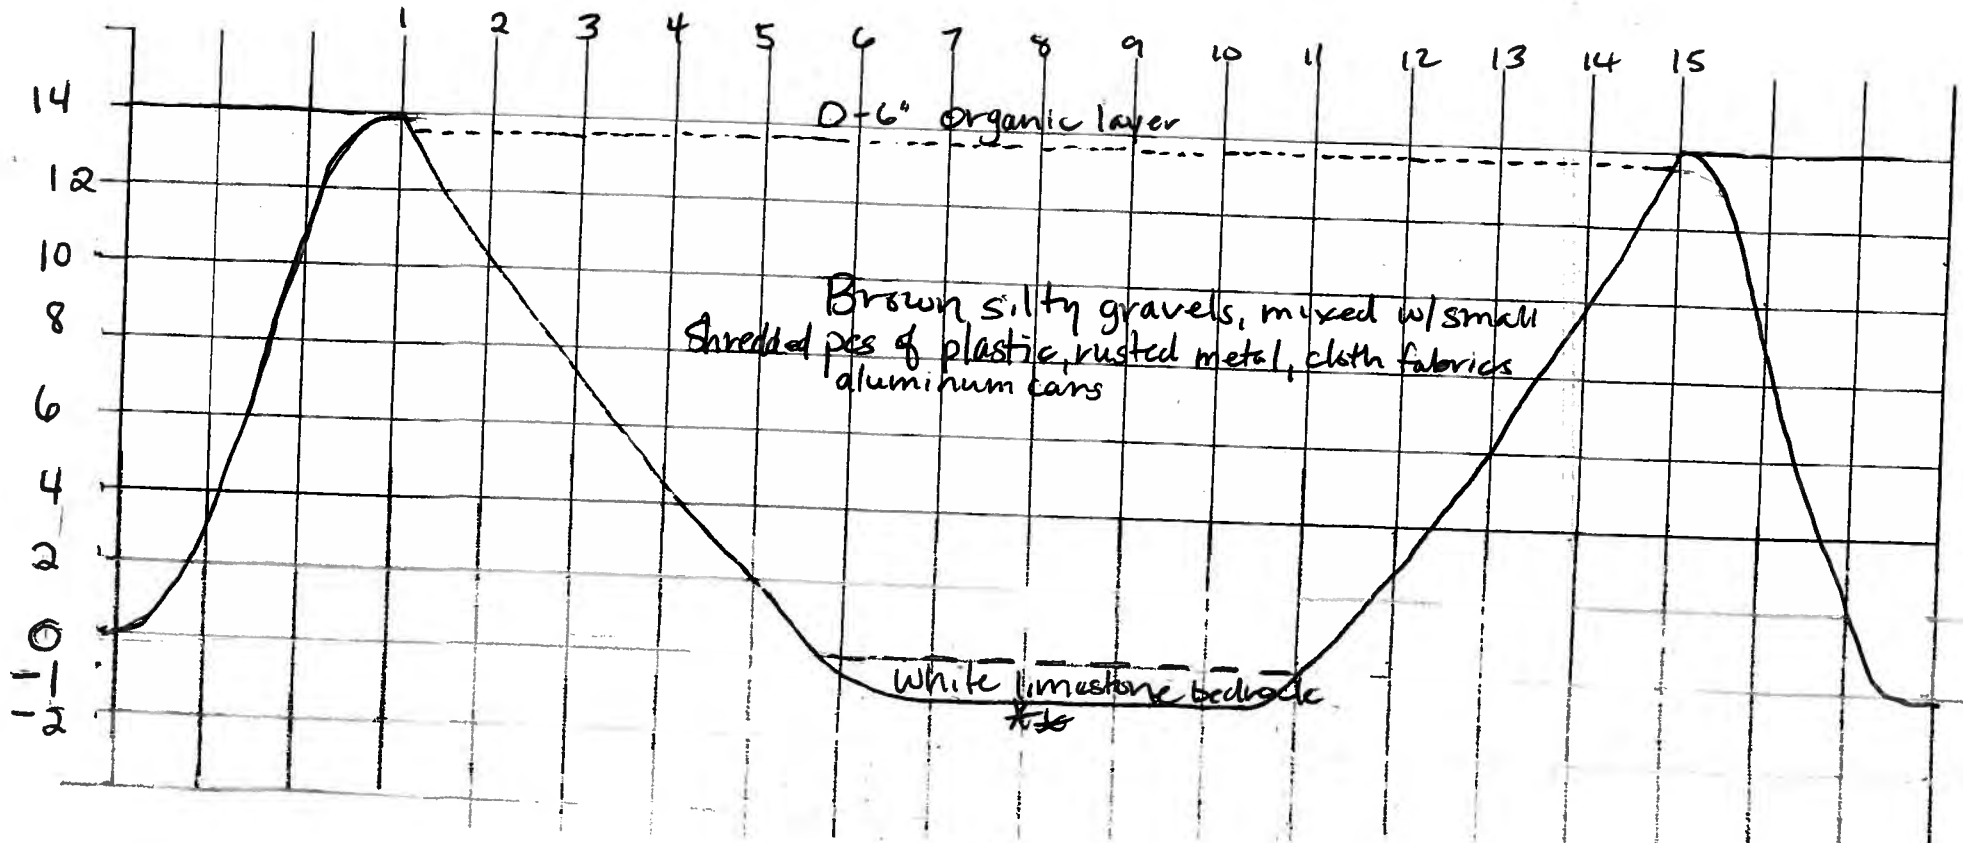 1 2 3 4 5 6 7 8 9 10 11 12 13 14 15
14
0-6" organic layer
12
10
Brown silty gravels, mixed w/small
8
Shredded pcs of plastic, rusted metal, cloth fabrics
aluminum cans
6
4
2
0
-1
White limestone bedrock
-2
**